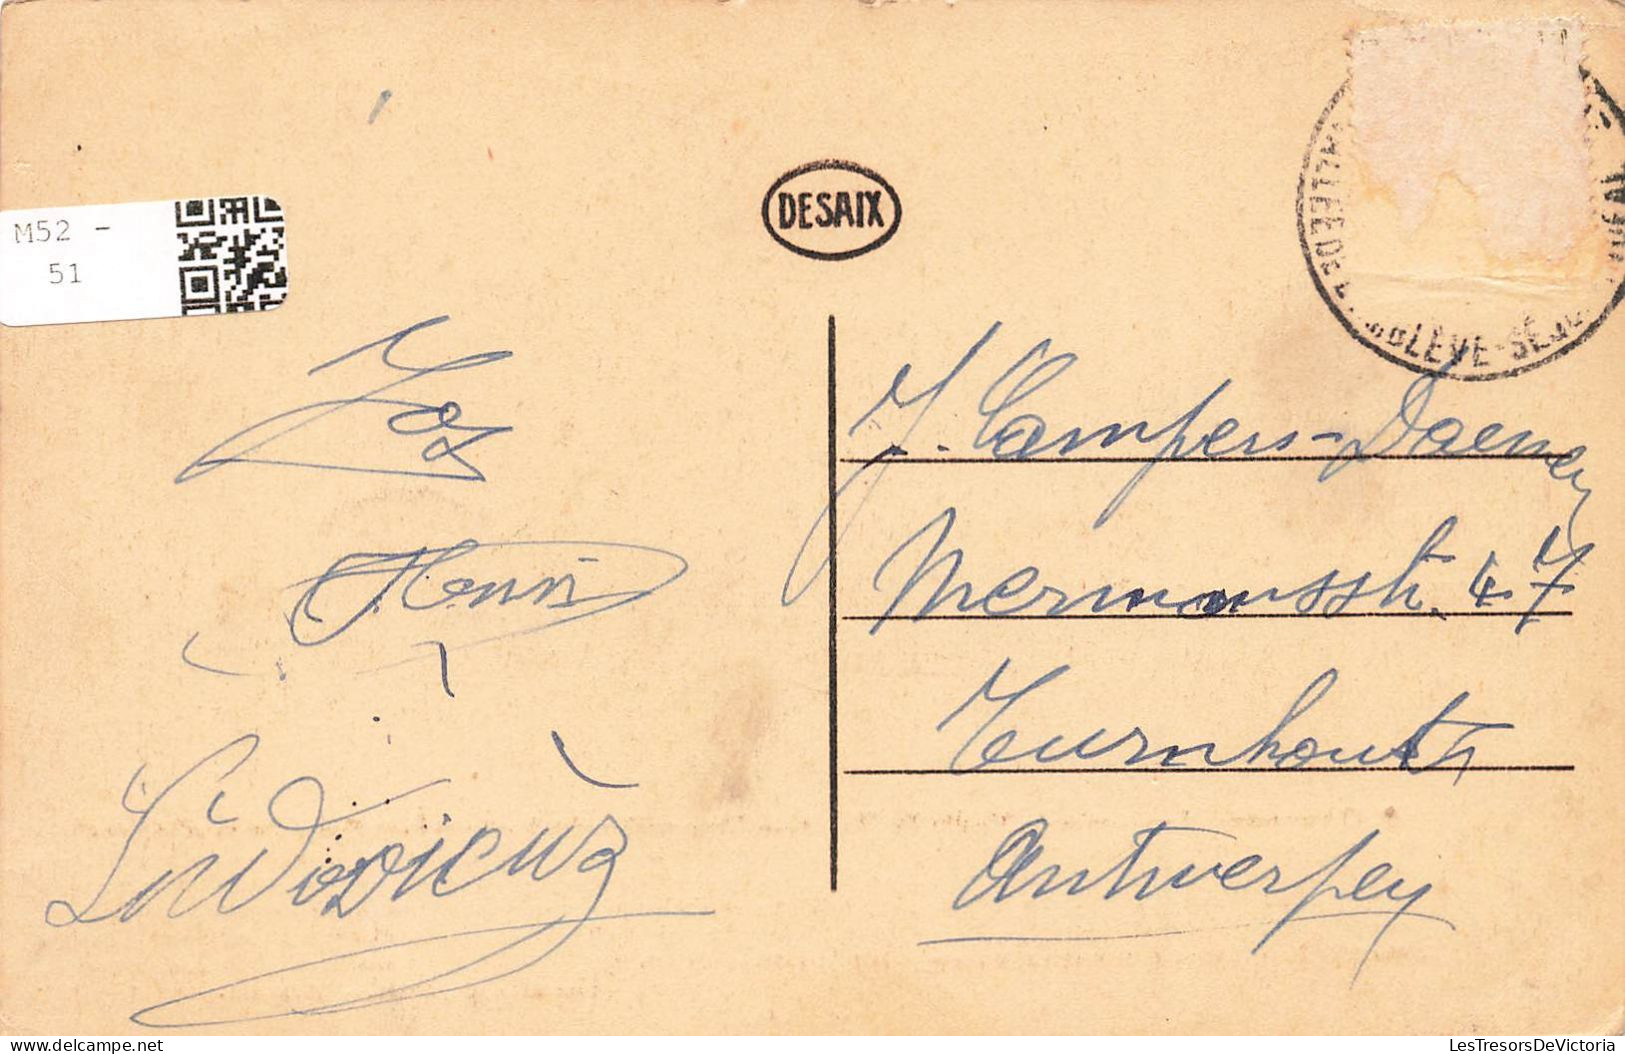 M52 -
51
DESAIX
VALLÉE DE L'AMBLÈVE-SÉJO
Jos
Henri
Ludovicus
J. Campers-Daemen
Mermansstr. 47
Turnhout
Antwerpen
LesTresorsDeVictoria